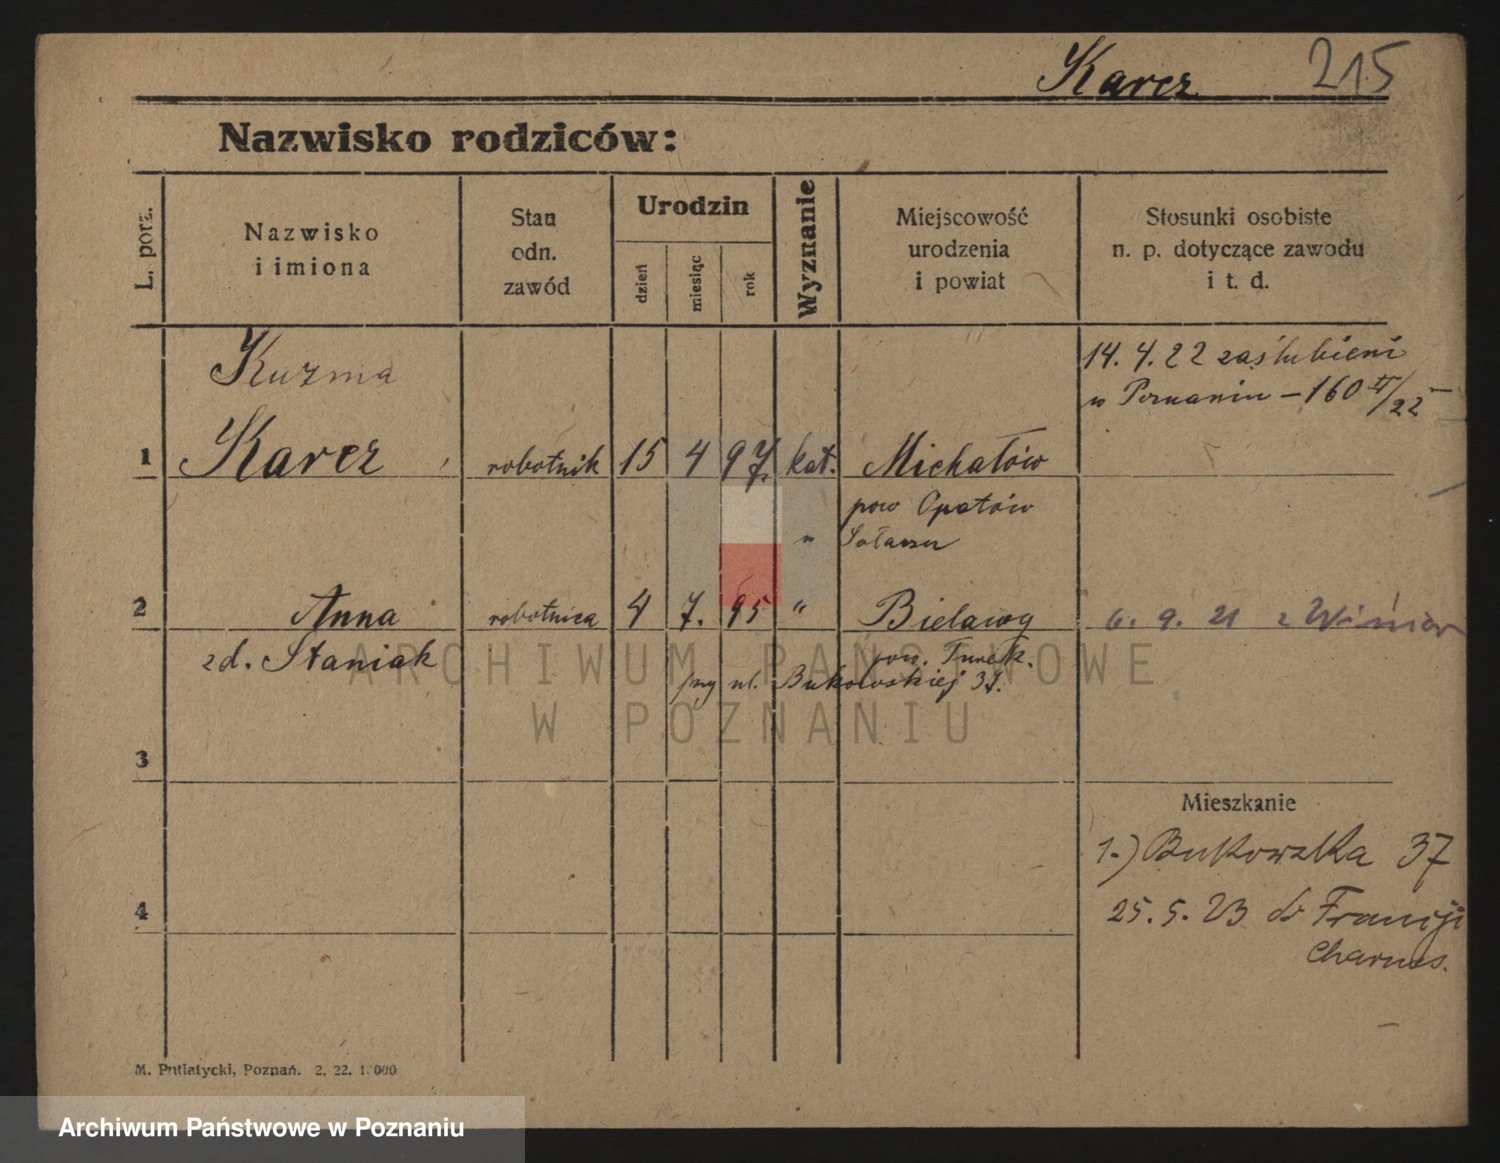 Karcz 215
Nazwisko rodziców:
L. porz.
Nazwisko
i imiona
Stan
odn.
zawód
Urodzin
dzień
miesiąc
rok
Wyznanie
Miejscowość
urodzenia
i powiat
Stosunki osobiste
n. p. dotyczące zawodu
i t. d.
Kuzma
14. 4. 22 zaślubieni
w Poznaniu – 160 II/22
1 Karcz robotnik 15 4 97. kat. Michałów
pow Opatów
"
2 Anna robotnica 4 7. 95 " Bielawy 6. 9. 21 z
zd. Staniak pow. Turek.
przy ul. Bukowskiej 37.
3
Mieszkanie
1.) Bukowska 37
4
25. 5. 23 do Francji
M. Putiatycki, Poznań. 2. 22. 1.000
ARCHIWUM PAŃSTWOWE
W POZNANIU
Archiwum Państwowe w Poznaniu